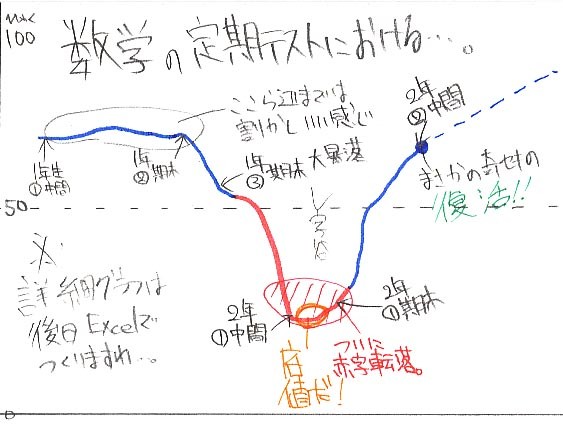 MAX
100
数学の定期テストにおける…。
ここら辺までは
割かしいい感じ
1年生
①中間
1年
②期末
1年
③期末 大暴落
2年
②中間
まさかの奇せきの
復活!!
50
V字谷
※
詳細グラフは
後日Excelで
つくりますね…。
2年
①中間
2年
①期末
ついに
赤字転落。
底
値だ!
0